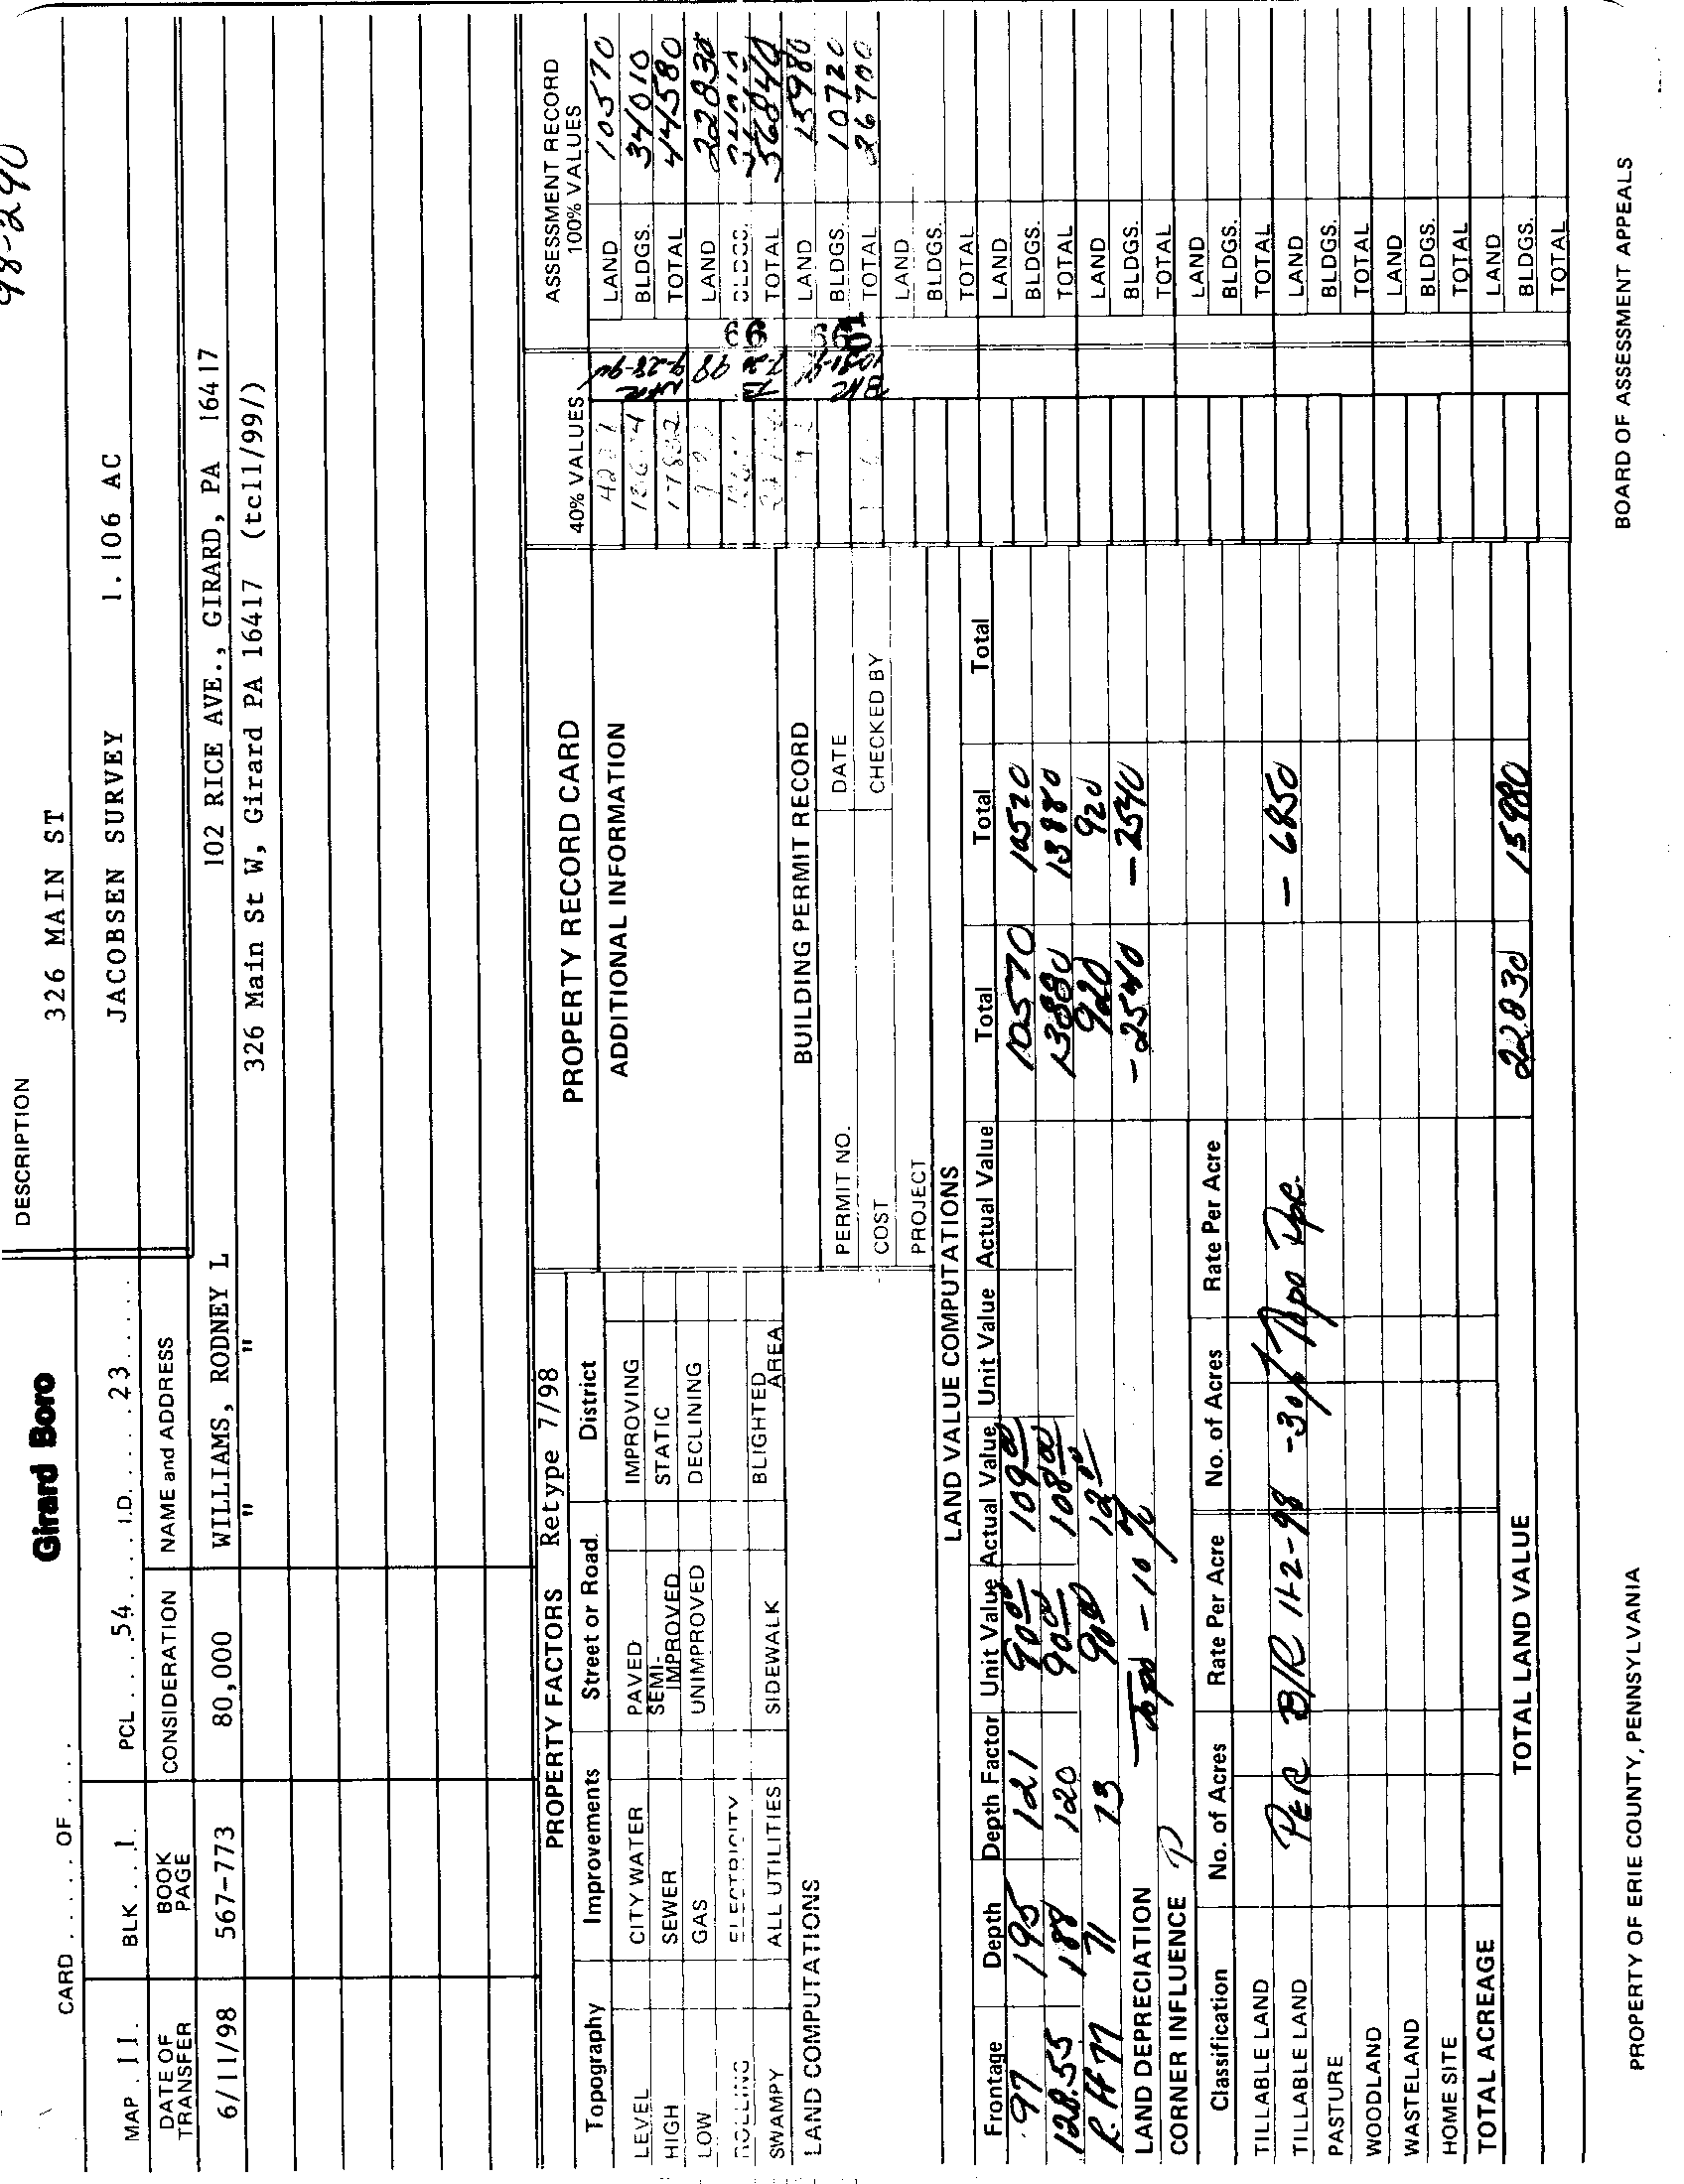 98-290
Girard Boro
DESCRIPTION
CARD ...... OF ....
326 MAIN ST
MAP . 11. BLK . . 1. PCL . . . 54. . . . I.D. . . . . . 23 . . . .
JACOBSEN SURVEY 1.106 AC
DATE OF TRANSFER BOOK PAGE CONSIDERATION NAME and ADDRESS
6/11/98 567-773 80,000 WILLIAMS, RODNEY L 102 RICE AVE., GIRARD, PA 16417
" " 326 Main St W, Girard PA 16417 (tc11/99/)
PROPERTY FACTORS Retype 7/98
Topography Improvements Street or Road District
LEVEL CITY WATER PAVED IMPROVING
HIGH SEWER SEMI-IMPROVED STATIC
LOW GAS UNIMPROVED DECLINING
ROLLING ELECTRICITY
SWAMPY ALL UTILITIES SIDEWALK BLIGHTED AREA
LAND COMPUTATIONS
PROPERTY RECORD CARD
ADDITIONAL INFORMATION
BUILDING PERMIT RECORD
PERMIT NO. DATE
COST CHECKED BY
PROJECT
40% VALUES
17832
ASSESSMENT RECORD
100% VALUES
9-28-94
LAND 10570
BLDGS. 34010
TOTAL 44580
98
LAND 22830
BLDGS. 34010
TOTAL 56840
LAND 15980
BLDGS. 10720
TOTAL 26700
LAND
BLDGS.
TOTAL
LAND
BLDGS.
TOTAL
LAND
BLDGS.
TOTAL
LAND
BLDGS.
TOTAL
LAND
BLDGS.
TOTAL
LAND
BLDGS.
TOTAL
LAND
BLDGS.
TOTAL
LAND VALUE COMPUTATIONS
Frontage Depth Depth Factor Unit Value Actual Value Unit Value Actual Value Total Total Total
97 195 121 90 00 109 00 10570 10570
128.55 188 120 90 00 108 00 13880 13880
R. Ft 77 71 13 90 00 12 00 920 920
LAND DEPRECIATION Topo - 10 % -2540 -2540
CORNER INFLUENCE
Classification No. of Acres Rate Per Acre No. of Acres Rate Per Acre
TILLABLE LAND
TILLABLE LAND PER B/R 11-2-98 -30% Topo Dpr. - 6850
PASTURE
WOODLAND
WASTELAND
HOME SITE
TOTAL ACREAGE TOTAL LAND VALUE 22830 15980
PROPERTY OF ERIE COUNTY, PENNSYLVANIA BOARD OF ASSESSMENT APPEALS